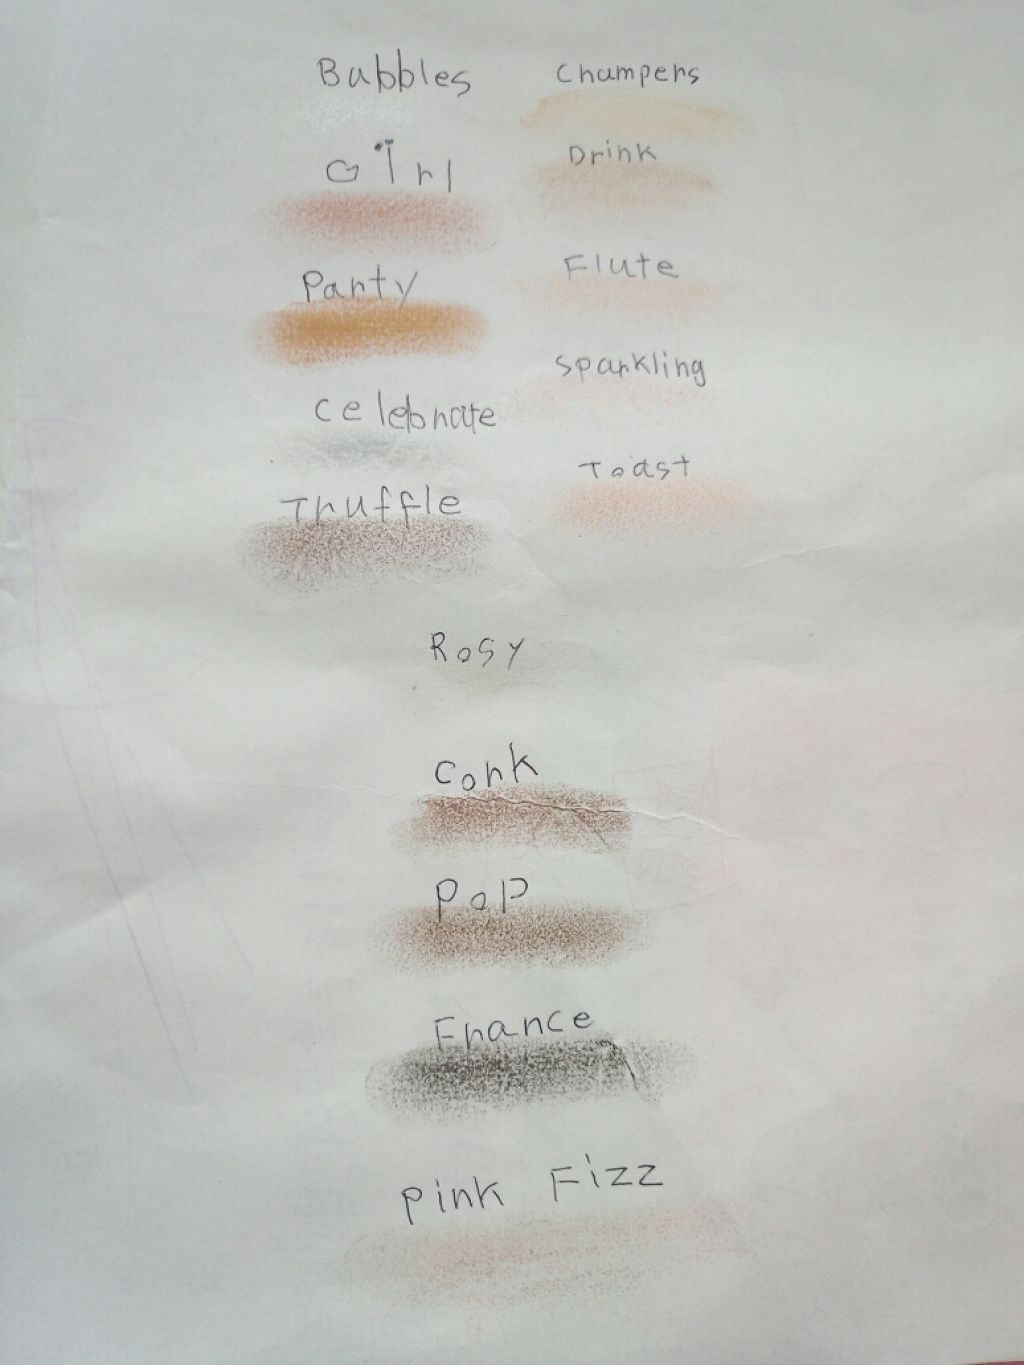 Bubbles
Champers
Girl
Drink
Party
Flute
Celebrate
Sparkling
Truffle
Toast
Rosy
Cork
Pop
France
Pink Fizz